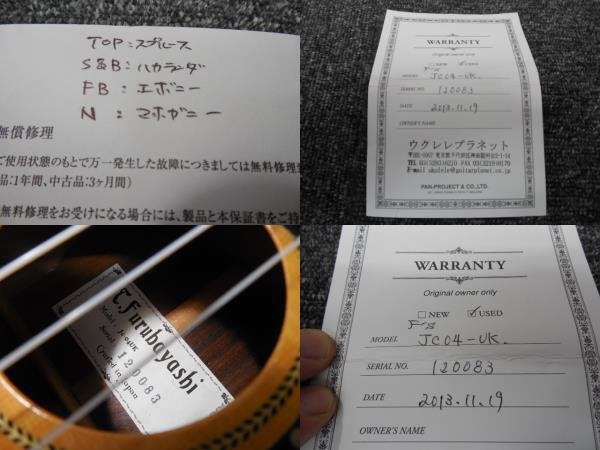 TOP:スプルース
S&B:ハカランダ
FB:エボニー
N:マホガニー
無償修理
ご使用状態のもとで万一発生した故障につきましては無料修理
品:1年間、中古品:3ヶ月間)
無料修理をお受けになる場合には、製品と本保証書をご持
WARRANTY
Original owner only
NEW USED
F/S
MODEL JC04-UK.
SERIAL NO. 120083
DATE 2013.11.19
OWNER'S NAME
ウクレレプラネット
E-mail ukulele@guitarplanet.co.jp
PAN-PROJECT & CO.LTD.
T.Furubayashi
Model
Serial 120083
Crafted in Japan
WARRANTY
Original owner only
NEW USED
F/S
MODEL JC04-UK.
SERIAL NO. 120083
DATE 2013.11.19
OWNER'S NAME